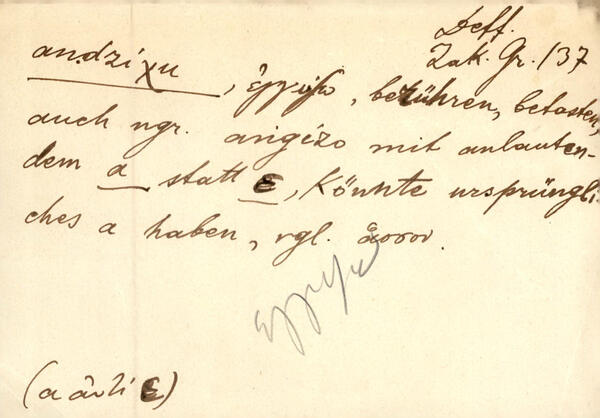 Deff.
Zak. Gr. 137
andziχu, ἐγγίζω, berühren, betasten,
auch ngr. angízo mit anlauten-
dem a statt ε, könnte ursprüngli-
ches a haben, vgl. ἆσσον.
(a ἀντὶ ε)